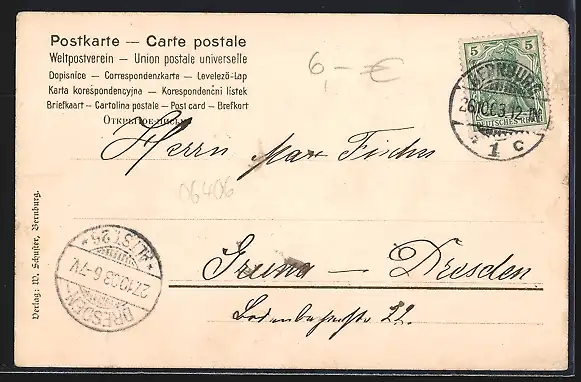 Postkarte — Carte postale
Weltpostverein — Union postale universelle
Dopisnice — Correspondenzkarte — Levelező-Lap
Karta korespondencyjna — Korespondenční listek
Briefkaart — Cartolina postale — Post card — Brefkort
Открытое письмо
6,— €
5 5
BERNBURG
26.10.03.12-1N
DEUTSCHES REICH
* 1 c
Herrn Max Fischer
06406
Gruna — Dresden
22.
Verlag: W. Schuster, Bernburg.
* ALTST.25 *
27.10.03.6-7V.
DRESDEN